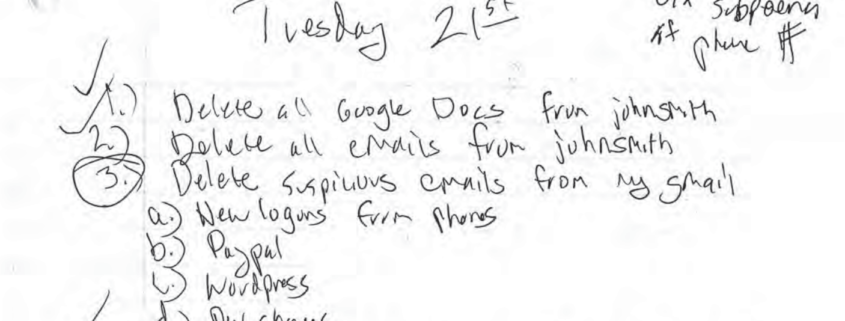 Tuesday 21st
subpoena
if phone #
1.) Delete all Google Docs from johnsmith
2.) Delete all emails from johnsmith
3.) Delete suspicious emails from my gmail
a.) New logons from phones
b.) Paypal
c.) Wordpress
d.)